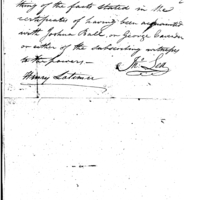 thing of the facts stated in the
certificates of having been acquainted
with Joshua Hall or George
or either of the subscribing witnesses
to the powers —
Henry Latimer